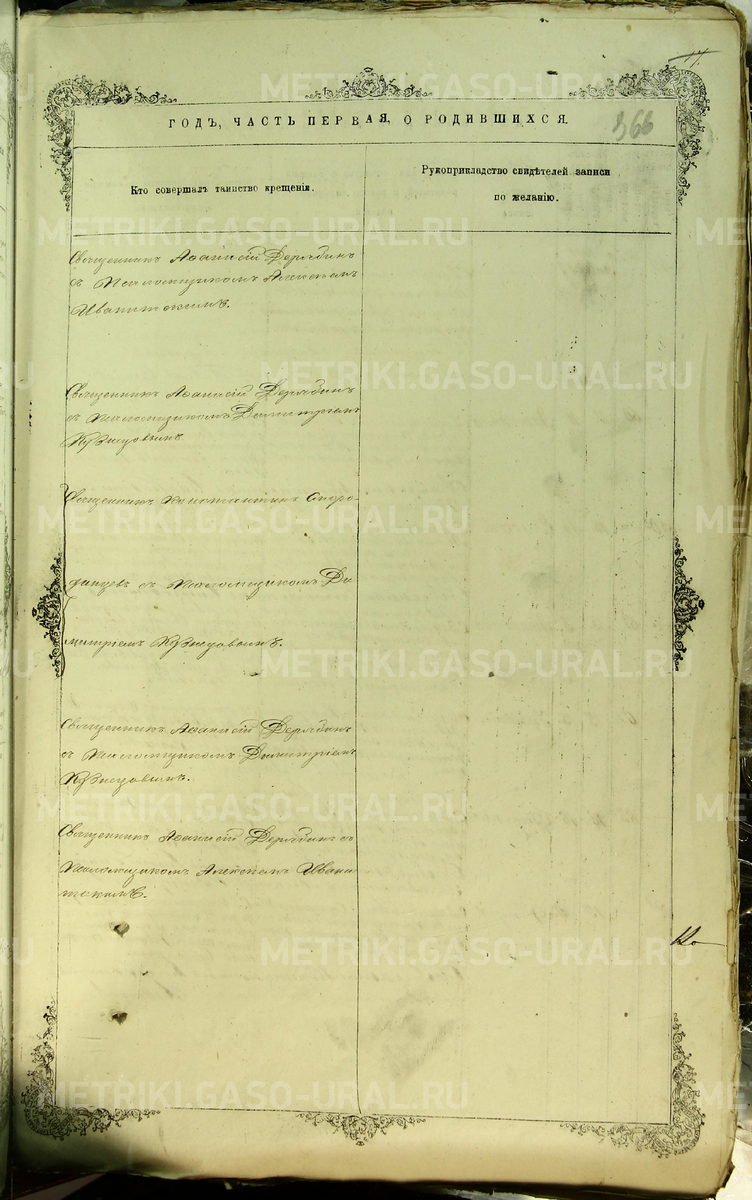 17.
366
ГОДЪ, ЧАСТЬ ПЕРВАЯ, О РОДИВШИХСЯ.
Кто совершалъ таинство крещенія.
Рукоприкладство свидѣтелей записи
по желанію.
Священникъ Афанасій Дерябинъ
съ Псаломщикомъ Алексѣемъ
Иваницкимъ.
Священникъ Афанасій Дерябинъ
съ Псаломщикомъ Димитріемъ
Священникъ Константинъ
съ Псаломщикомъ Ди
митріемъ
Священникъ Афанасій Дерябинъ
съ Псаломщикомъ Димитріемъ
Священникъ Афанасій Дерябинъ съ
Псаломщикомъ Алексѣемъ Ивани
цкимъ.
METRIKI.GASO-URAL.RU